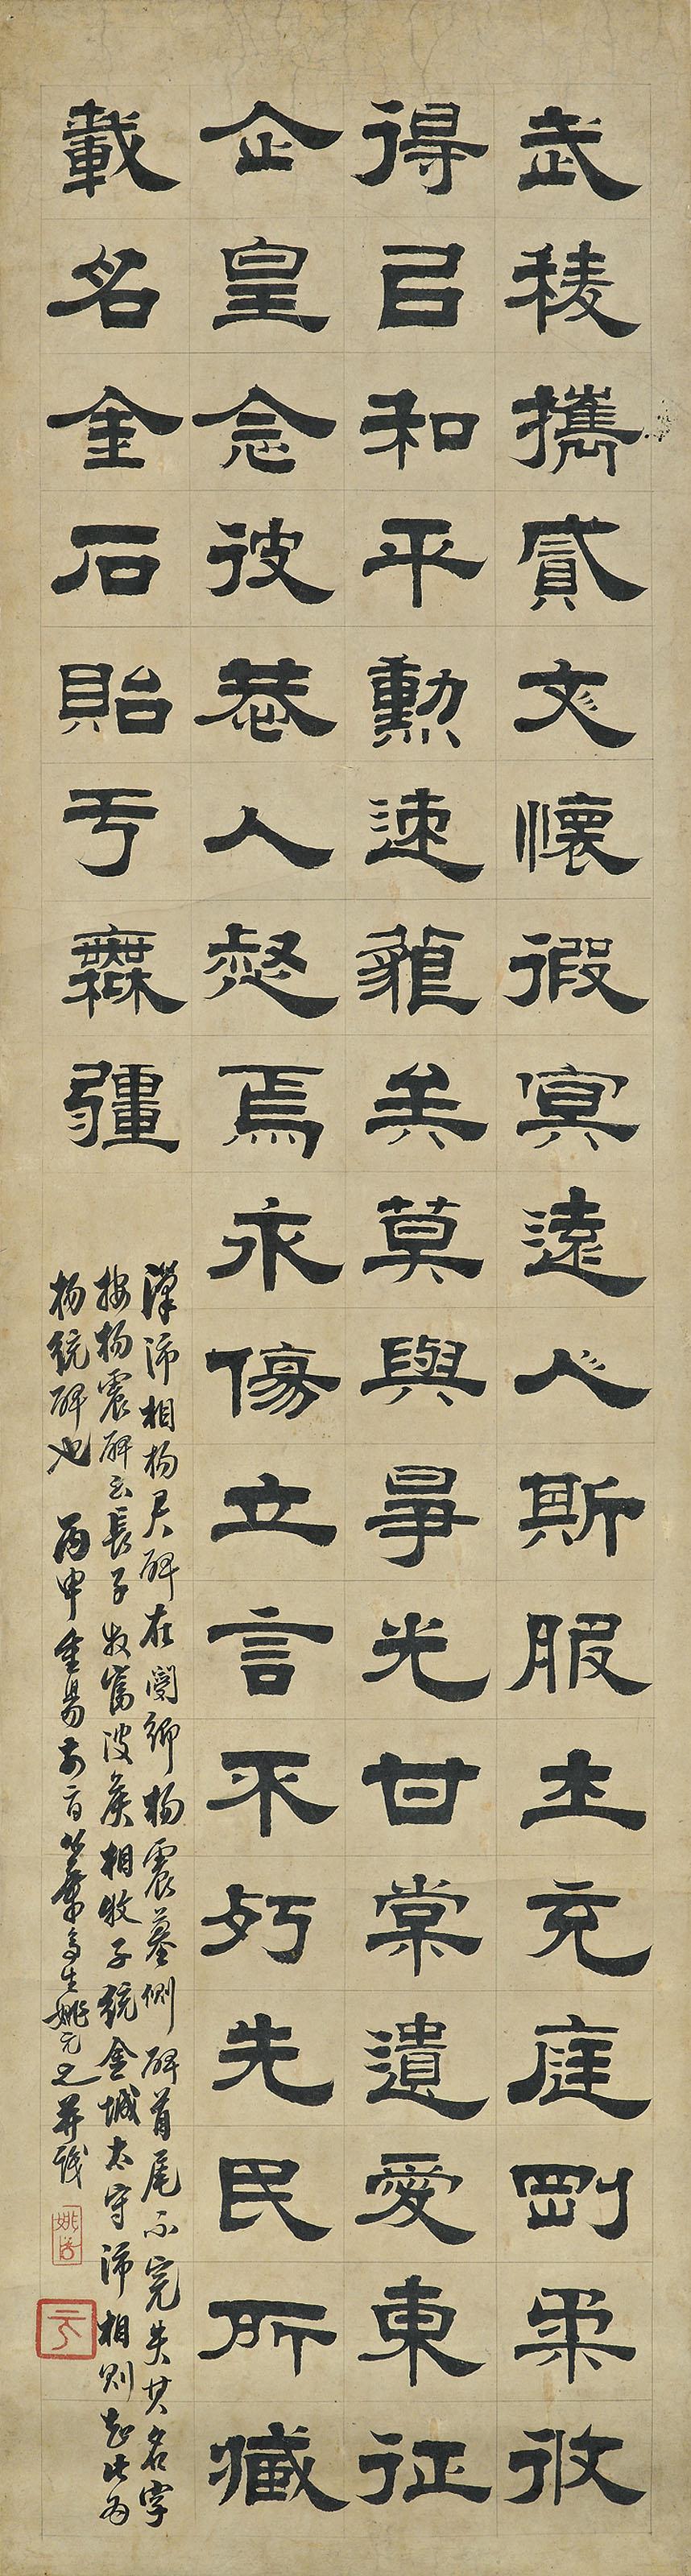 武稜攜貳文懷徦冥遠人斯服士充庭剛柔攸
得㠯和平勳速藐矣莫與爭光甘棠遺愛東征
企皇念彼恭人惄焉永傷立言不朽先民所臧
載名金石貽亏無疆
漢沛相楊君碑在閿鄉楊震墓側碑首尾不完失其名字
按楊震碑云長子牧富波矦相牧子統金城太守沛相則知此為
楊統碑也 丙申重昜前二日竹葉亭生姚元之并識
元之